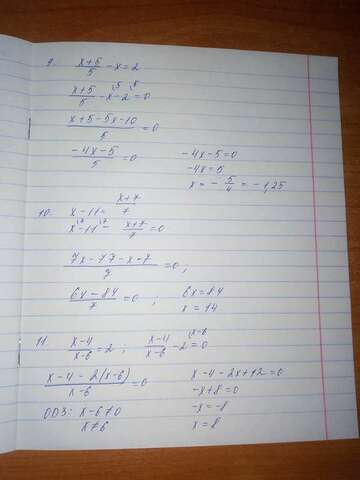 9. (x+5)/5 - x = 2
(x+5)/5 - x - 2 = 0
(x+5-5x-10)/5 = 0
(-4x-5)/5 = 0    -4x-5=0
-4x=5
x = - 5/4 = -1,25
10. x-11 = (x+7)/7
x - 11 - (x+7)/7 = 0
(7x-77-x-7)/7 = 0;
(6x-84)/7 = 0 ;    6x=84
x = 14
11. (x-4)/(x-6) = 2 ;    (x-4)/(x-6) - 2 = 0
(x-4-2(x-6))/(x-6) = 0    x-4-2x+12=0
-x+8=0
ОДЗ: x-6≠0    -x=-8
x≠6    x=8